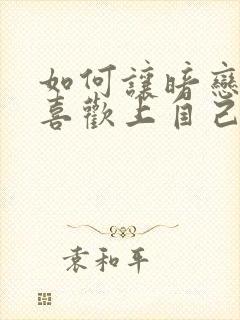 如何讓暗戀
喜歡上自己
袁和平